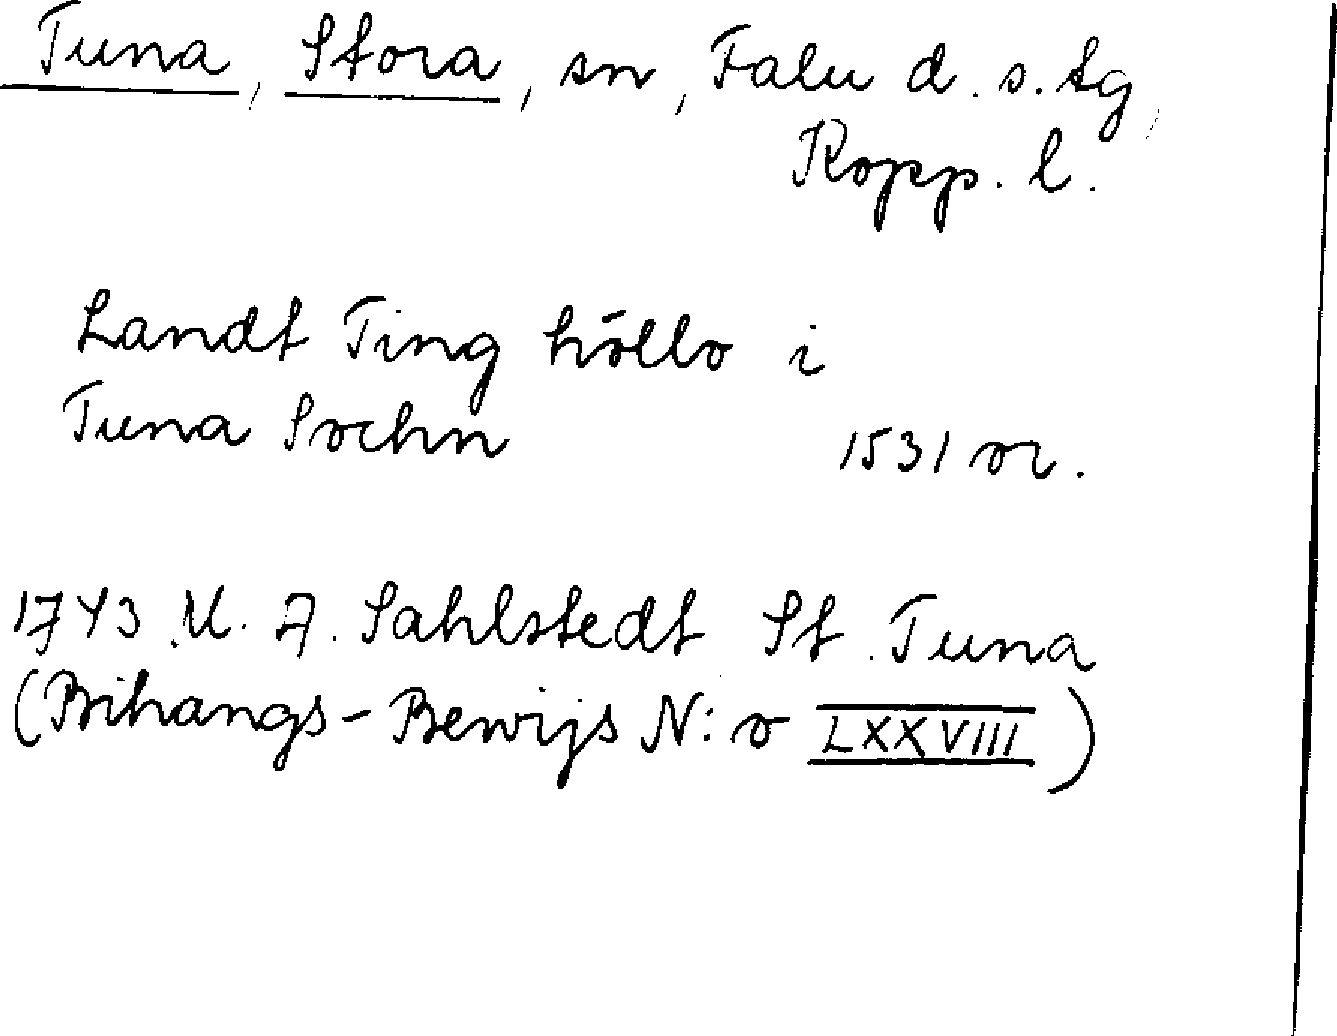 Tuna, Stora, sn, Falu d. s. tg,
Kopp. l.
Landt Ting höllo i
Tuna Sochn 1531 or.
1743 M. A. Sahlstedt St. Tuna
(Bihangs-Bewijs N:o LXXVIII)